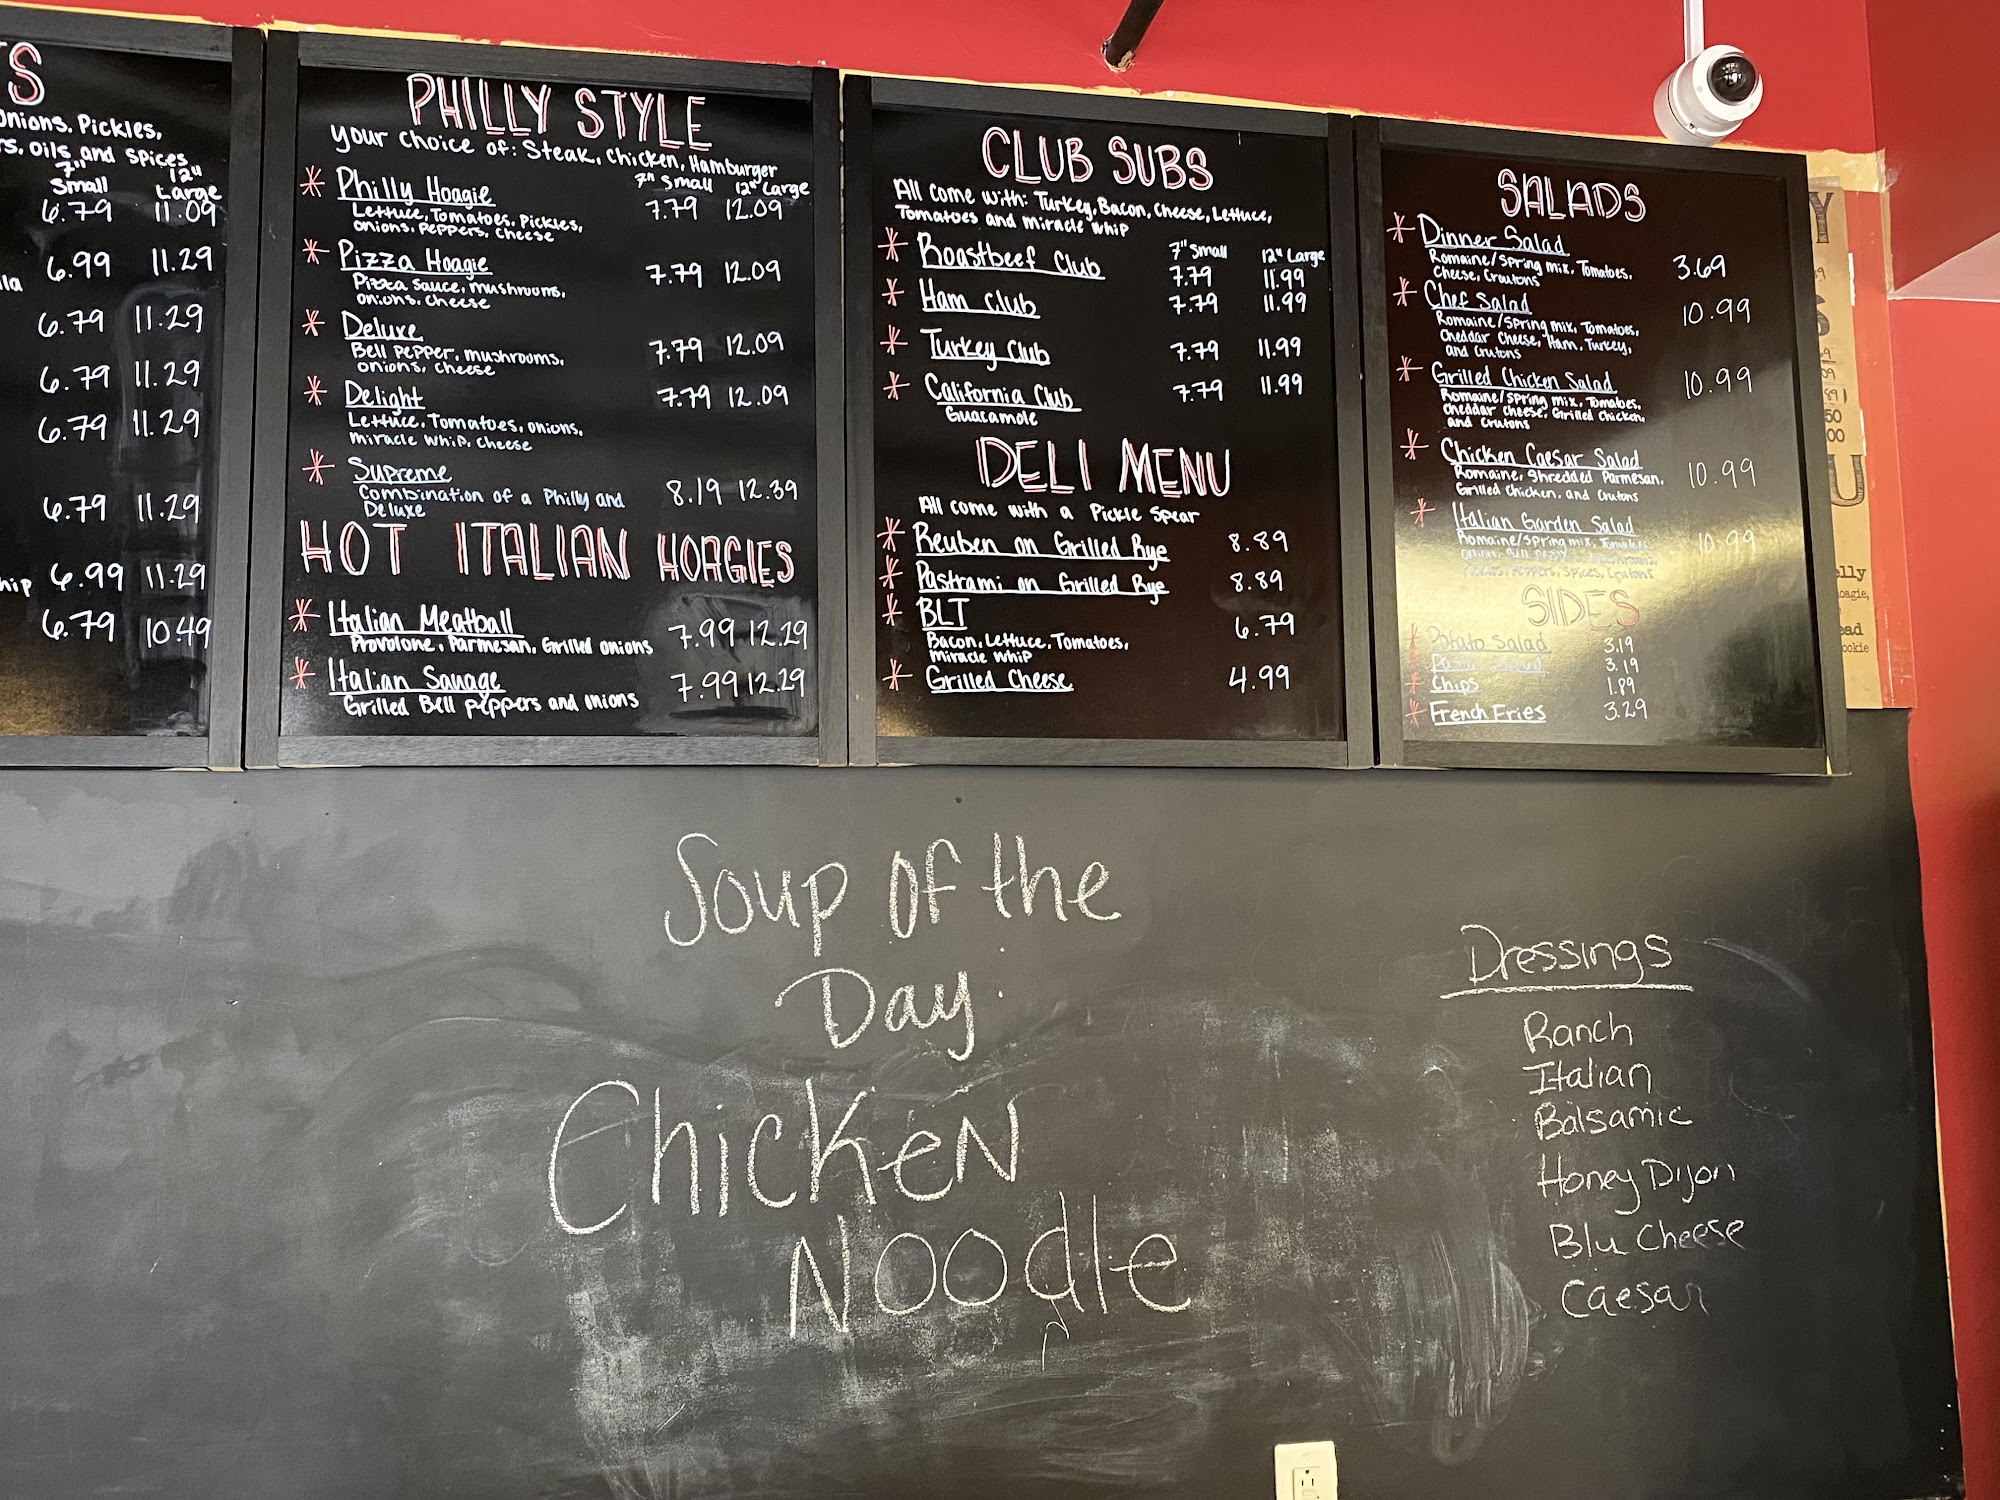 S
Onions, Pickles,
rs, oils, and spices
7" 12"
Small Large
6.79 11.09
6.99 11.29
lla
6.79 11.29
6.79 11.29
6.79 11.29
6.79 11.29
hip 6.99 11.29
6.79 10.49
PHILLY STYLE
your choice of: Steak, chicken, Hamburger
7" Small 12" Large
Philly Hoagie 7.79 12.09
Lettuce, Tomatoes, Pickles,
onions, peppers, cheese
Pizza Hoagie 7.79 12.09
Pizza sauce, mushrooms,
onions, cheese
Deluxe 7.79 12.09
Bell pepper, mushrooms,
onions, cheese
Delight 7.79 12.09
Lettuce, Tomatoes, onions,
miracle whip, cheese
Supreme 8.19 12.39
Combination of a Philly and
Deluxe
HOT ITALIAN HOAGIES
Italian Meatball 7.99 12.29
Provolone, Parmesan, Grilled onions
Italian Sauage 7.99 12.29
Grilled Bell peppers and onions
CLUB SUBS
All come with: Turkey, Bacon, cheese, Lettuce,
Tomatoes and miracle whip
7" Small 12" Large
Roastbeef Club 7.79 11.99
Ham Club 7.79 11.99
Turkey Club 7.79 11.99
California Club 7.79 11.99
Guacamole
DELI MENU
All come with a Pickle spear
Reuben on Grilled Rye 8.89
Pastrami on Grilled Rye 8.89
BLT 6.79
Bacon, Lettuce, Tomatoes,
miracle whip
Grilled Cheese 4.99
SALADS
Dinner Salad 3.69
Romaine/Spring mix, Tomatoes,
Cheese, Croutons
Chef Salad 10.99
Romaine/Spring mix, Tomatoes,
Cheddar Cheese, Ham, Turkey,
and Crutons
Grilled Chicken Salad 10.99
Romaine/Spring mix, Tomatoes,
Cheddar cheese, Grilled chicken,
and Crutons
Chicken Caesar Salad 10.99
Romaine, Shredded Parmesan,
Grilled Chicken, and Crutons
Italian Garden Salad 10.99
Romaine/Spring mix, Tomatoes,
Pickles, Peppers, Spices, Crutons
SIDES
Potato Salad 3.19
Pasta Salad 3.19
Chips 1.89
French Fries 3.29
Y
U
elly
hoagie,
ead
ookie
Soup of the
Day:
Chicken
Noodle
Dressings
Ranch
Italian
Balsamic
Honey Dijon
Blu Cheese
Caesar